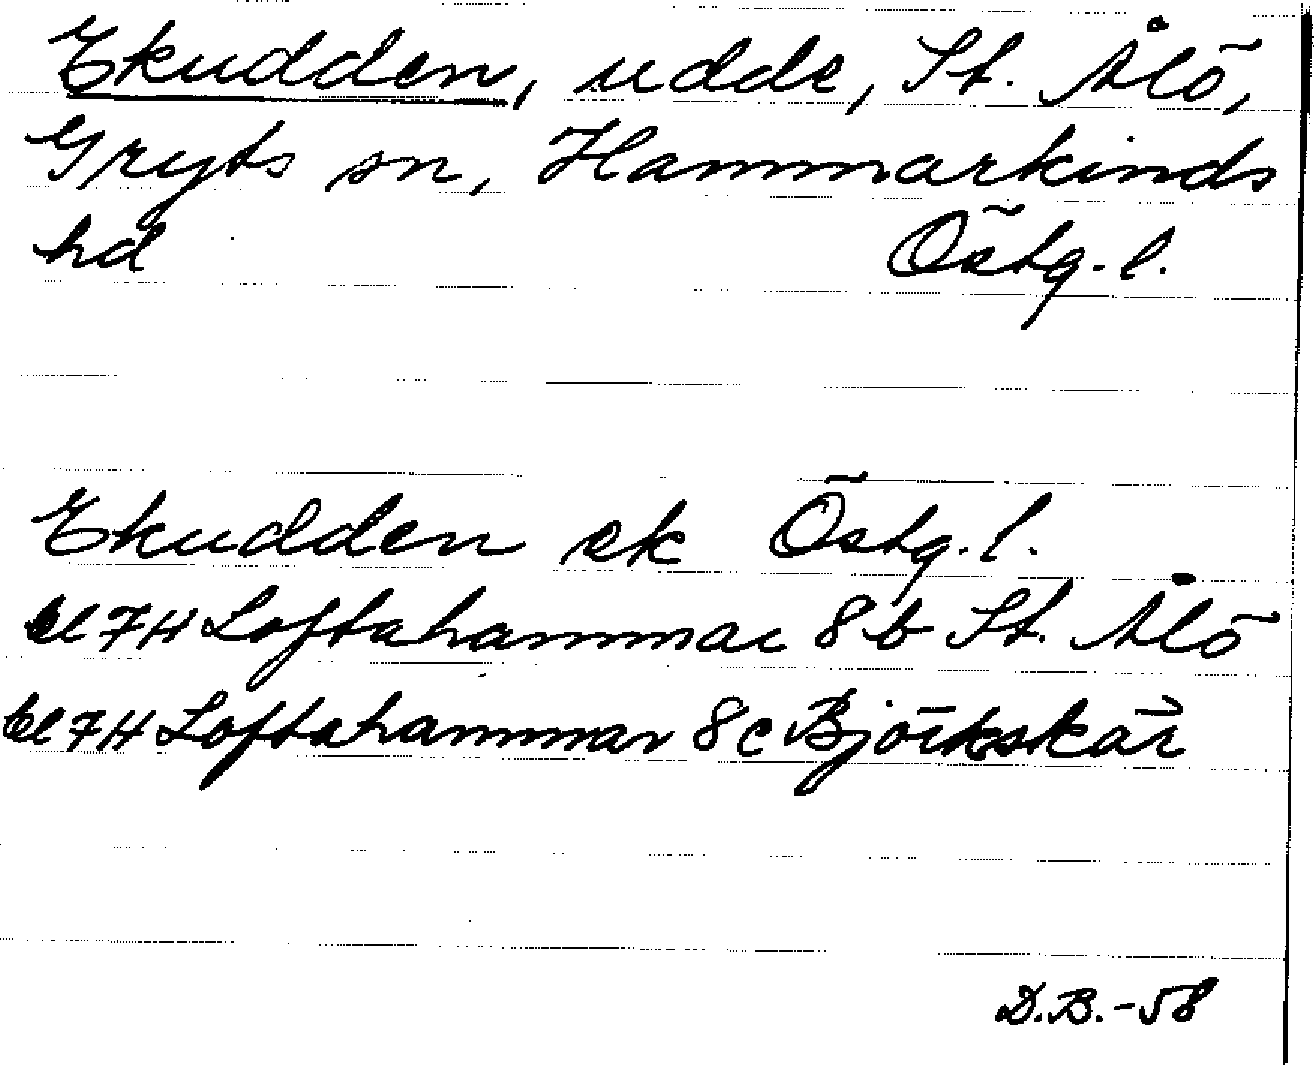 Ekudden, udde, St. Ålö,
Gryts sn, Hammarkinds
hd Östg. l.
Ekudden ek Östg. l.
bl 7H Loftahammar 8 b St. Ålö
bl 7H Loftahammar 8 c Björkskär
D.B. - 58